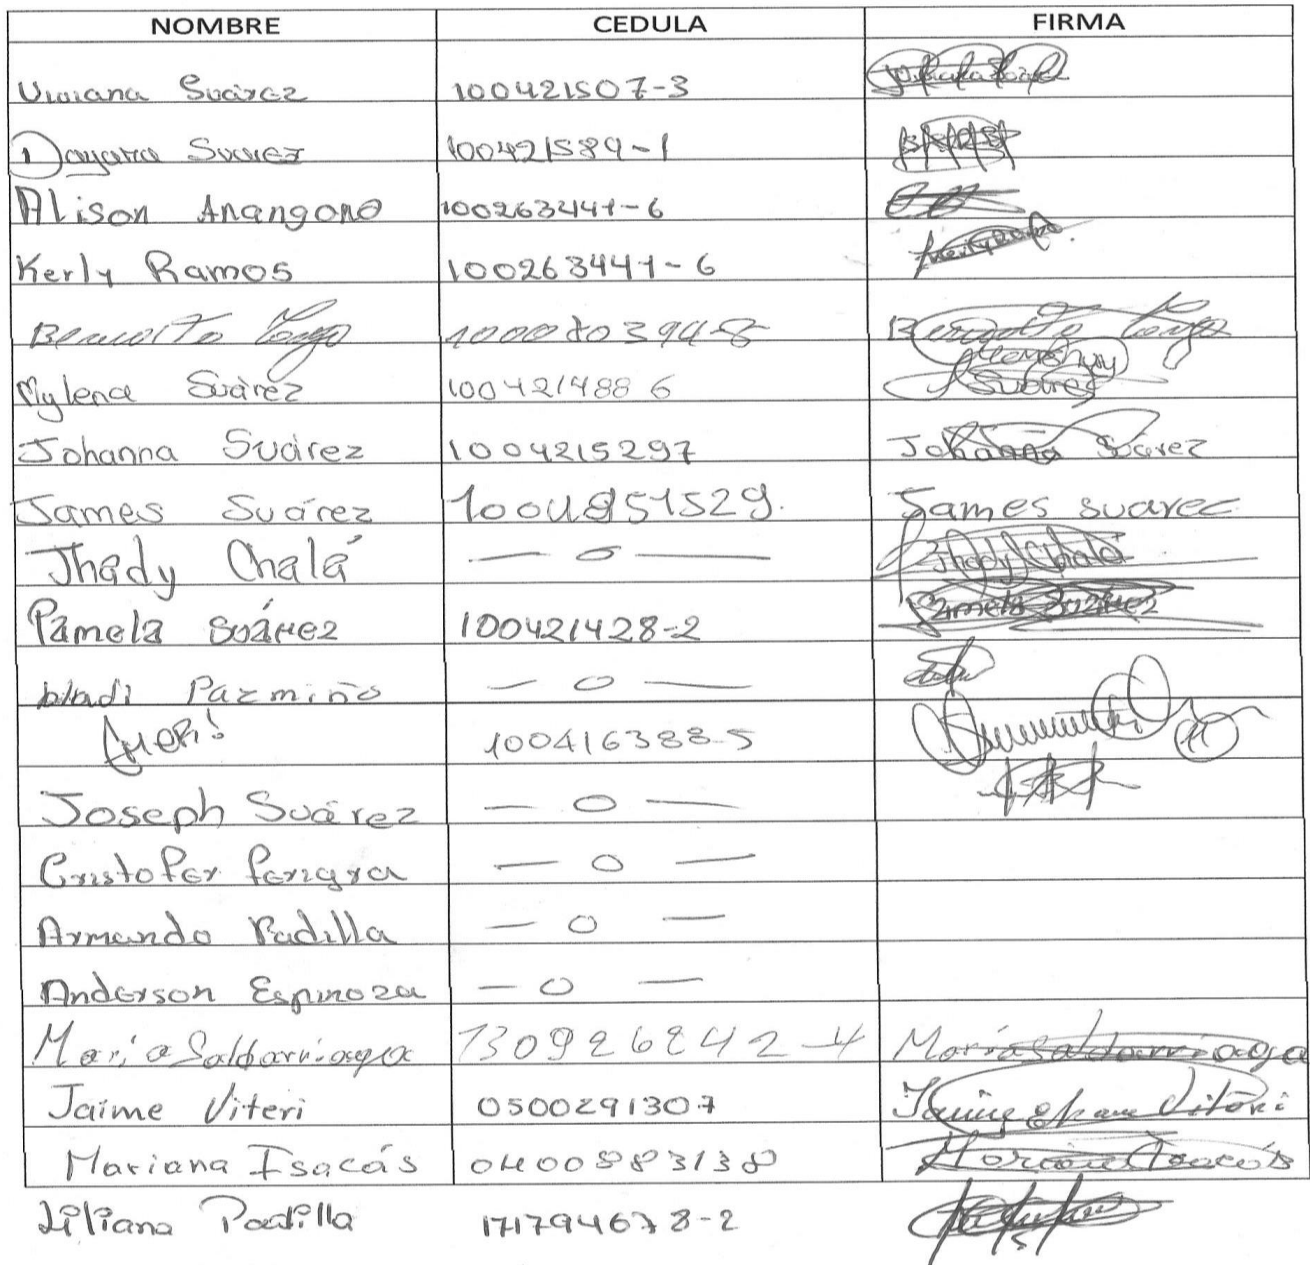 NOMBRE CEDULA FIRMA
Viviana Suárez 100421507-3
Dayana Suarez 100421589-1
Alison Anangonó 100263441-6
Kerly Ramos 100263441-6 Kerly Ramos
Benedito 
Mylena Suàrez 100421488 6 Suárez
Johanna Suárez 1004215297 Johanna Suárez
James Suárez James suarec
Jhady Chalá — 0 — Jhady Chalá
Pamela Suárez 100421428-2 Pamela Suárez
bladi Pazmiño — 0 —
100416388-5
Joseph Suárez — 0 —
Cristofer — 0 —
Armando Padilla — 0 —
Anderson Espinoza — 0 —
Maria Saldarriaga 130926242-4 Maria Saldarriaga
Jaime Viteri 0500291307 Jaime Viteri
Mariana Isacás 0400583138 Mariana Isacás
Liliana Padilla 171794678-2